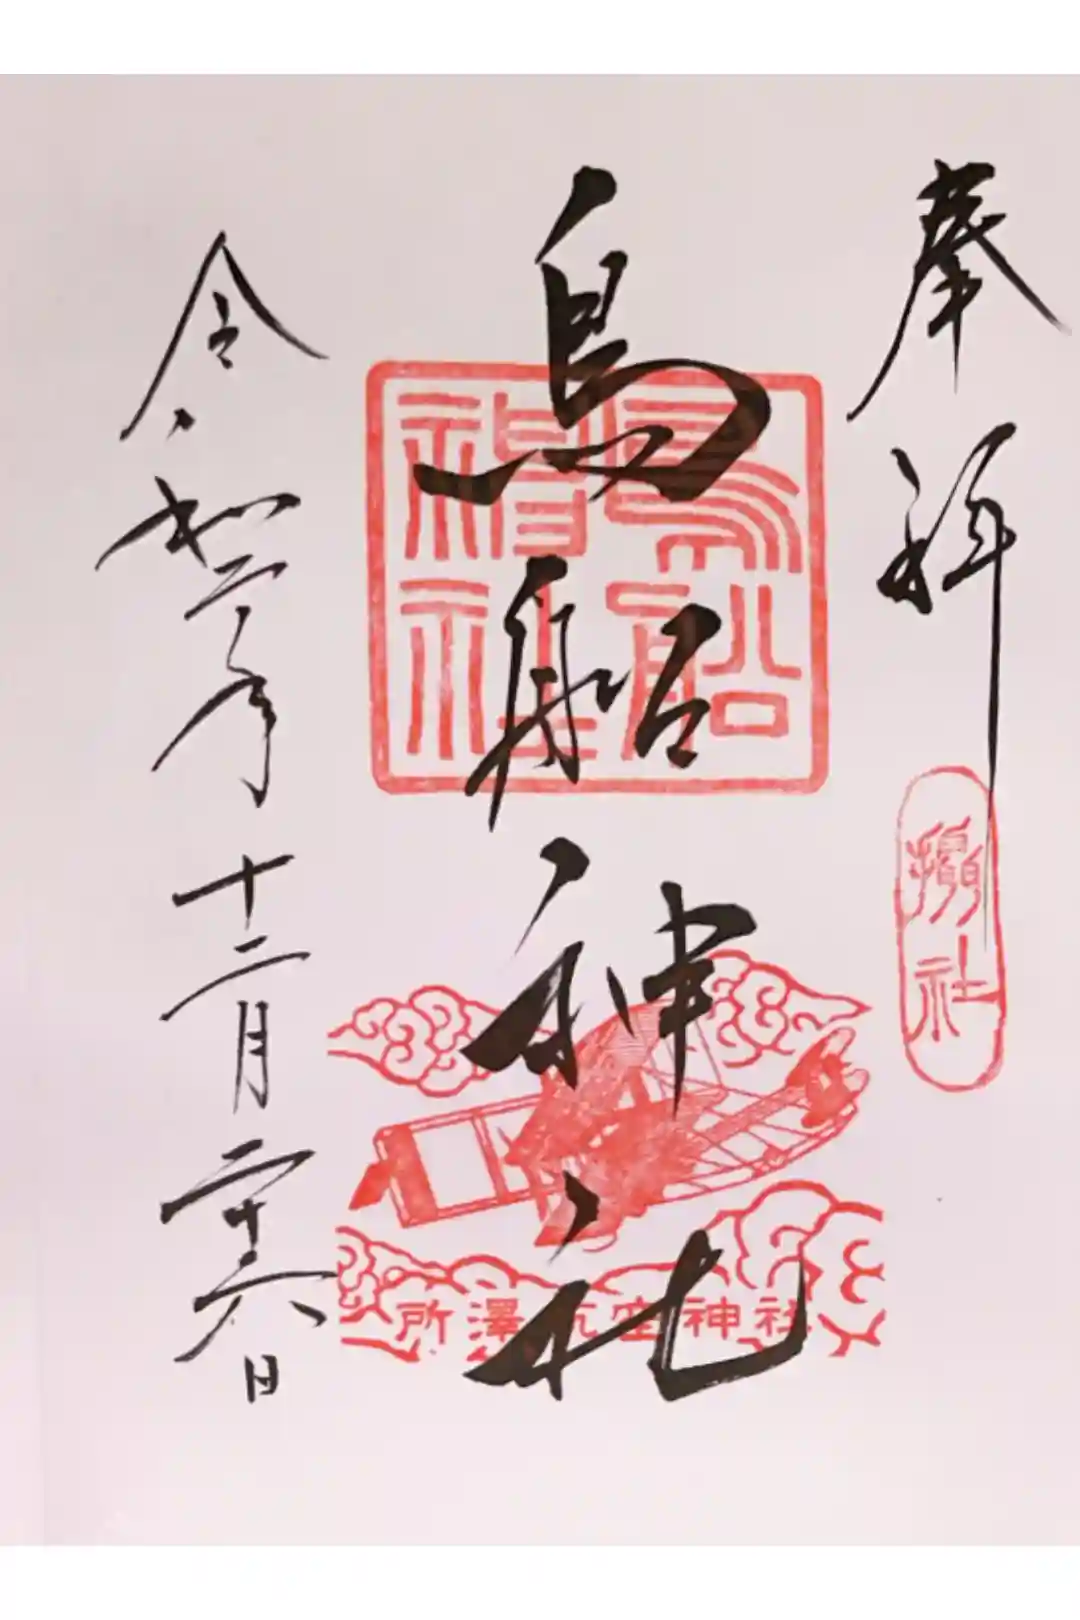 奉拝
攝社
鳥船神社
鳥船神社
所澤航空神社
令和二年十二月二十六日